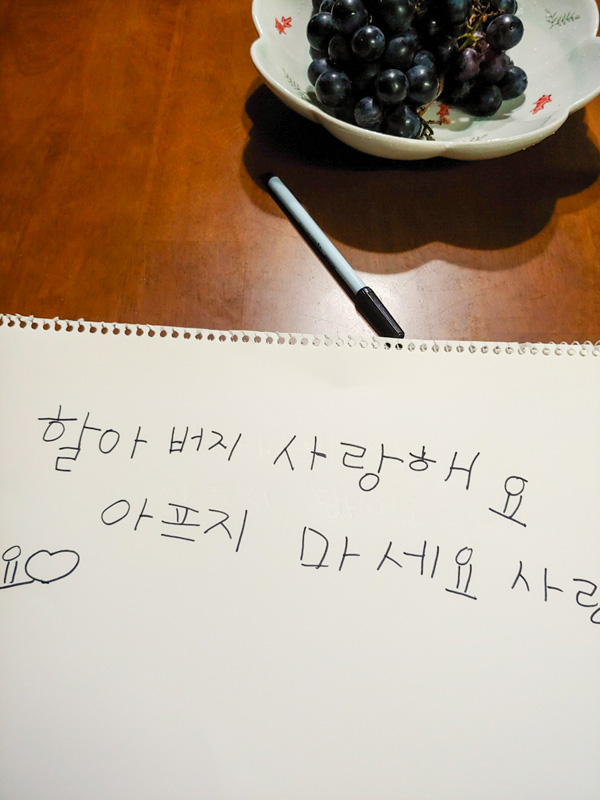 할아버지 사랑해요
아프지 마세요 사랑
요♡